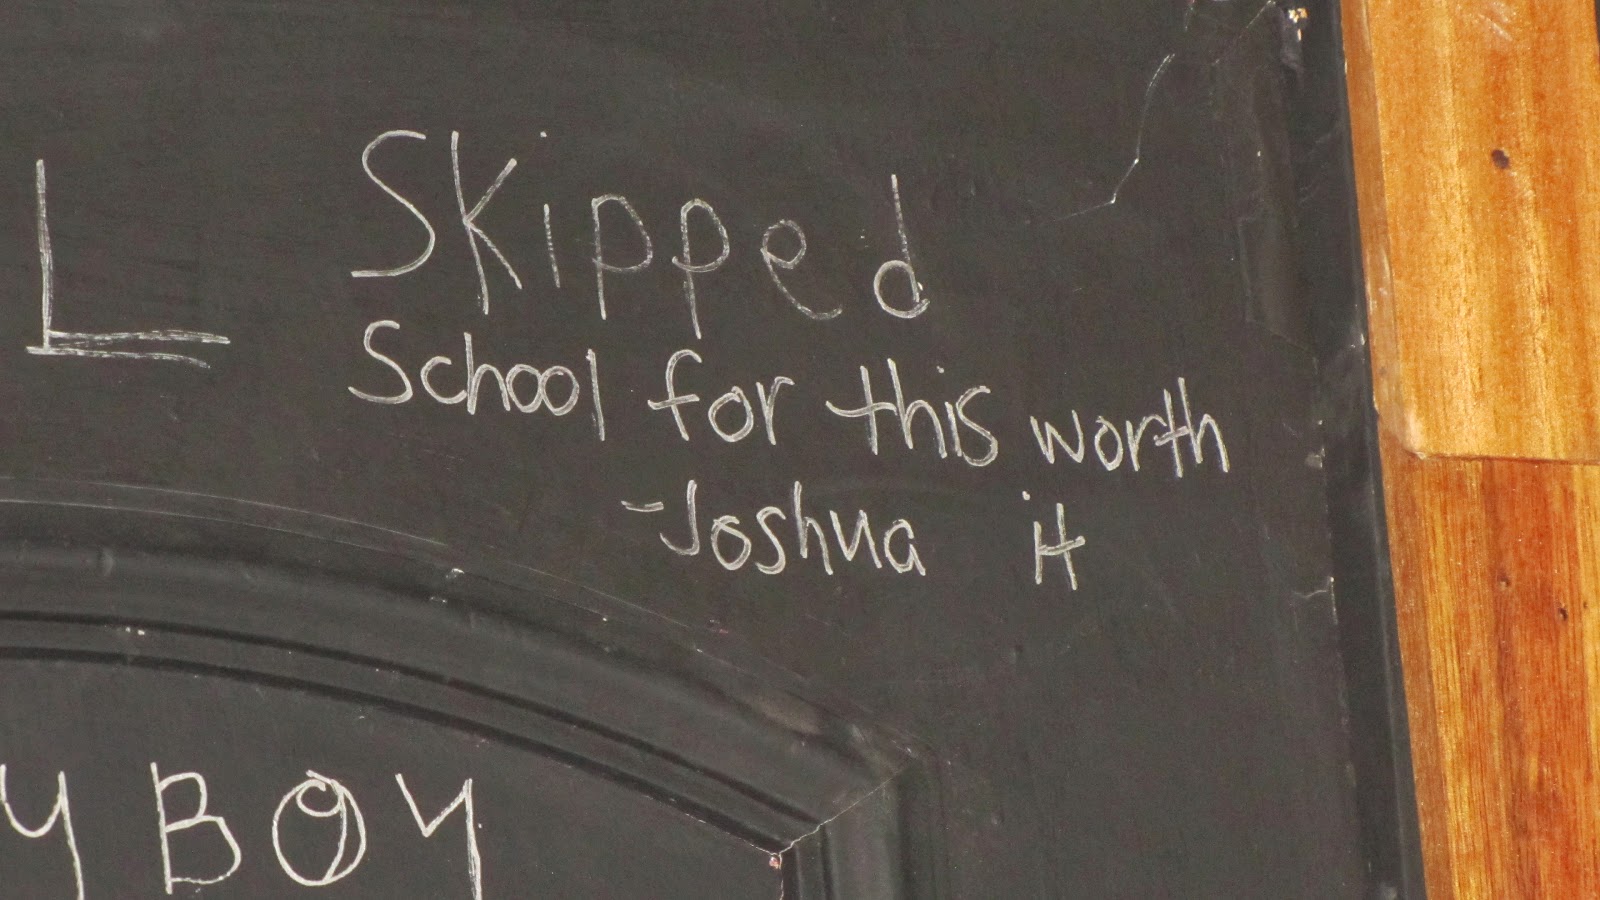 L
Skipped
School for this worth
-Joshua it
Y BOY